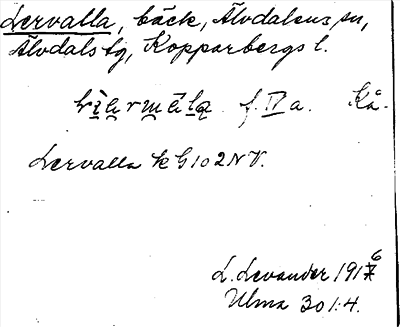 Lervalla, bäck, Älvdalens sn,
Älvdals tg, Kopparbergs l.
f. II a. Kå.
Lervalla k G 102 NV.
L. Levander 1916
Ulma 301:4.